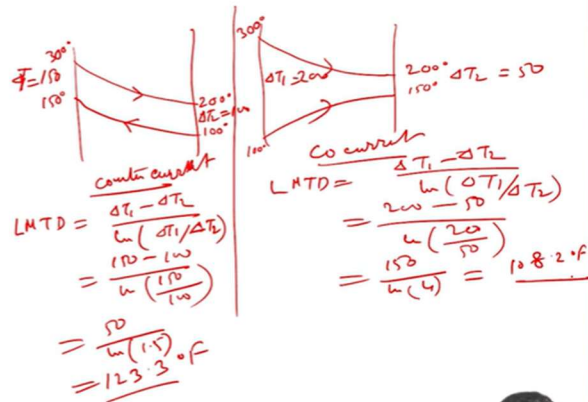 300°
ΔT₁=150
150°
200°
ΔT₂=100
100°
counter current
LMTD = ΔT₁ - ΔT₂ / ln(ΔT₁/ΔT₂)
= 150 - 100 / ln(150/100)
= 50 / ln(1.5)
= 123.3 °F
300°
ΔT₁=200
200° ΔT₂ = 50
150°
100°
Co current
LMTD = ΔT₁ - ΔT₂ / ln(ΔT₁/ΔT₂)
= 200 - 50 / ln(200/50)
= 150 / ln(4) = 108.2 °F